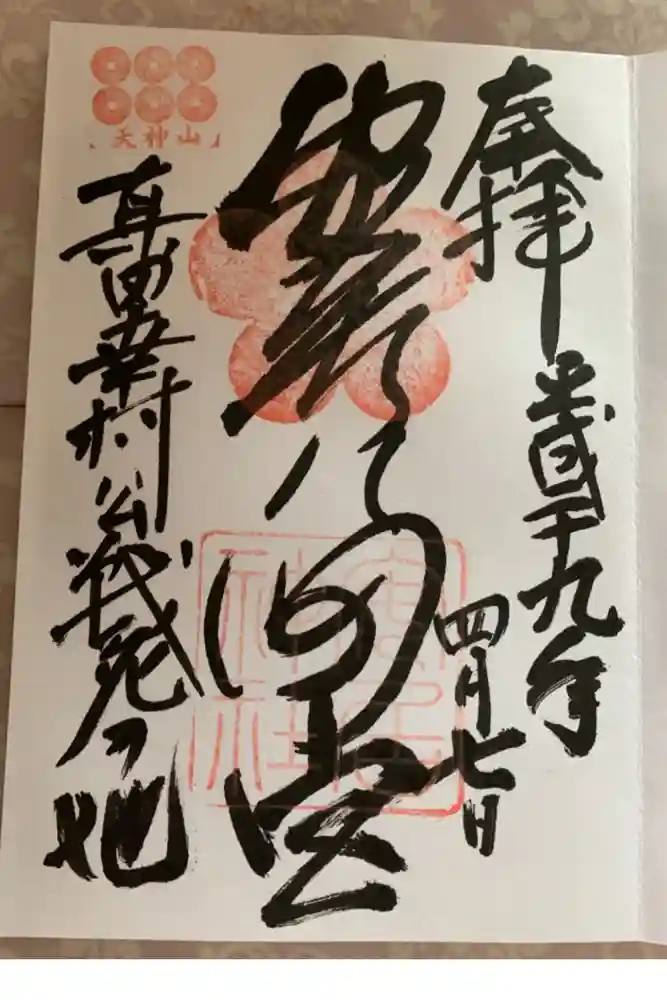 奉拝
平成廿九年
四月七日
安居
神社
天神山
真田幸村公戦死ノ地